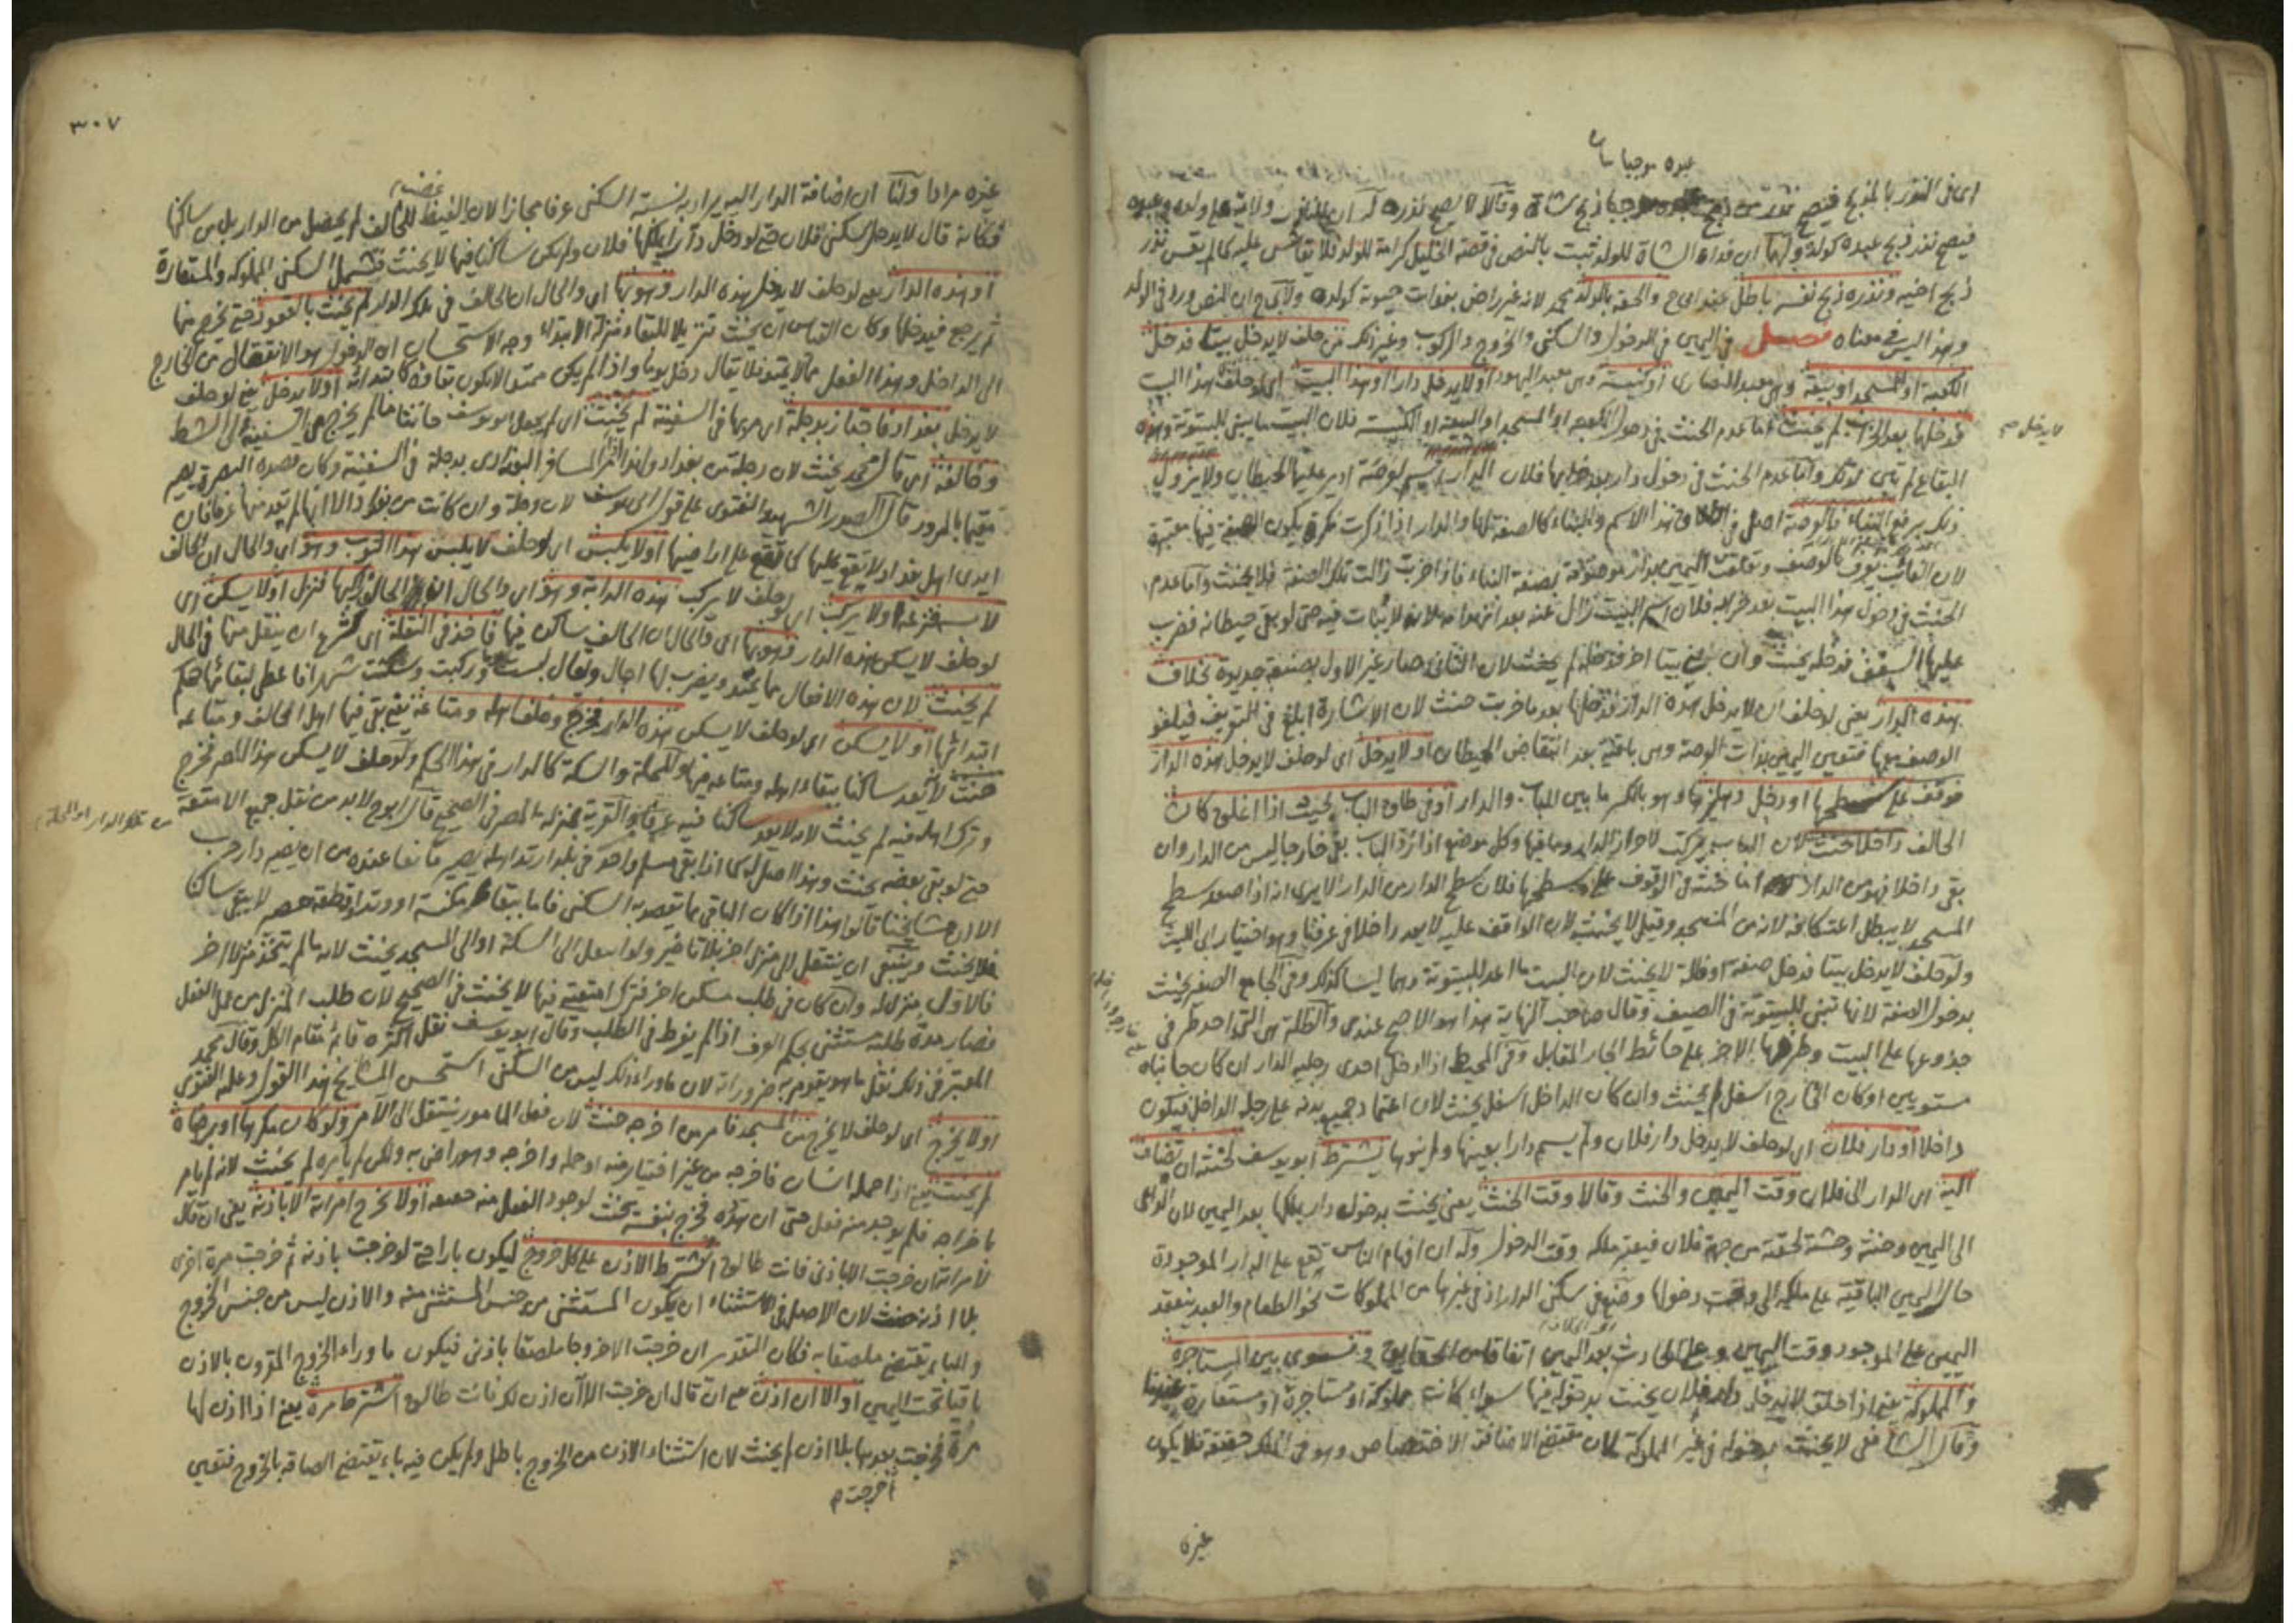 عبده موجبا شاة
اى فى النذر بالذبح فيصح نذر من ذبح عبده موجبا ذبح شاة وقالا لا يصح نذره له ان ولاية على ولده وعبده
فيصح نذر ذبح عبده كولده ولهما ان فداء الشاة للولد ثبت بالنص فى قصة الخليل كرامة للولد فلا يقاس عليه كما لم يقس نذر
ذبح اخيه ونذره ذبح نفسه باطل عند ابى ح والحقه بالولد محمد لانه غير راض بفوات حيوته كولده ولابى ح ان النص ورد فى الولد
وهذا ليس فى معناه فصل فى اليمين فى الدخول والسكنى والخروج والركوب وغير ذلك من حلف لا يدخل بيتا فدخل
الكعبة او المسجد او بيعة وهى معبد النصارى او كنيسة وهى معبد اليهود او لا يدخل دارا او هذا البيت اى لو حلف هذا البيت
لا يدخل صح
فدخلها بعد الخراب لم يحنث اما عدم الحنث فى دخول الكعبة او المسجد او البيعة او الكنيسة فلان البيت ما يبنى للبيتوتة وهذه
البقاع لم تبن لذلك واما عدم الحنث فى دخول دار بعد خرابها فلان الدار اسم لعرصة ادير عليها الحيطان ولا يزول
ذلك برفع البناء فالعرصة اصل فى اطلاق هذا الاسم والبناء كالصفة لها والدار اذا ذكرت نكرة يكون الصفة فيها معتبرة
لان الغائب يعرف بالوصف وتعلقت اليمين بدار موصوفة بصفة البناء فاذا خربت زالت تلك الصفة فلا يحنث واما عدم
الحنث فى دخول هذا البيت بعد خرابه فلان اسم البيت زال عنه بعد انهدامه لانه لا يبات فيه حتى لو بقى حيطانه فضرب
عليها السقف فدخله يحنث وان بنى بيتا اخر فدخله لم يحنث لان الثانى صار غير الاول بصنعة جديدة بخلاف
هذه الدار يعنى لو حلف ان لا يدخل هذه الدار فدخلها بعد ما خربت حنث لان الاشارة ابلغ فى التعريف فيلغو
الوصف معها فتعين اليمين بذات العرصة وهى باقية بعد انتقاض الحيطان او لا يدخل اى لو حلف لا يدخل هذه الدار
فوقف على سطحها او دخل دهليزها وهو بالكسر ما بين الباب والدار او فى طاق الباب بحيث اذا اغلق كان
الحالف داخلا حنث لان الباب يركب لاحراز الدار وما فيها وكل موضع اذا رد الباب بقى خارجا ليس من الدار وان
بقى داخلا فهو من الدار اما حنثه فى الوقوف على سطحها فلان سطح الدار من الدار الا يرى انه اذا صعد سطح
المسجد لا يبطل اعتكافه لانه من المسجد وقيل لا يحنث لان الواقف عليه لا يعد داخلا فى عرفنا وهو اختيار ابى الليث
ولو حلف لا يدخل بيتا فدخل صفة او ظلة لا يحنث لان البيت ما اعد للبيتوتة وهما ليسا كذلك وفى الجامع الصغير يحنث
بدخول الصفة لانها تبنى للبيتوتة فى الصيف وقال صاحب النهاية هذا هو الاصح عندى والظلة هى التى احد طرفى
جذوعها على البيت وطرفها الاخر على حائط الجار المقابل وفى المحيط اذا ادخل احدى رجليه الدار ان كان جانباه
مستويين او كان الخارج اسفل لم يحنث وان كان الداخل اسفل يحنث لان اعتماد جميع بدنه على رجله الداخل فيكون
داخلا او دار فلان اى لو حلف لا يدخل دار فلان ولم يسم دارا بعينها ولم ينوها يشترط ابو يوسف لحنثه ان تضاف
اليه اى الدار الى فلان وقت اليمين والحنث وقالا وقت الحنث يعنى يحنث بدخول دار يملكها بعد اليمين لان الداعى
الى اليمين وحشة لحقته من جهة فلان فيعتبر ملكه وقت الدخول وله ان افهام الناس تقع على الدار الموجودة
حال اليمين الباقية على ملكه الى وقت دخولها وضعها فى سكنى الدار اذ فى غيرها من المملوكات نحو الطعام والعبد ينعقد
اليمين على الموجود وقت اليمين وعلى الحادث بعد اليمين اتفاقا من الحقايق ونسوى بين المستاجرة
والمملوكة يعنى اذا حلف لا يدخل دار فلان يحنث بدخوله فيها سواء كانت مملوكة او مستاجرة او مستعارة عندنا
وقال الشافعى لا يحنث بدخوله فى غير المملوكة لان مقتضى الاضافة الاختصاص وهو فى الملك حقيقة فلا يكون
غيره
٣٠٧
غيره مرادا ولنا ان اضافة الدار اليه يراد به نسبة السكنى عرفا مجازا لان الغيظ للحالف لم يحصل من الدار بل من ساكنها
فكانه قال لا يدخل مسكن فلان حتى لو دخل دارا يملكها فلان ولم يكن ساكنا فيها لا يحنث فتشمل السكنى المملوكة والمستعارة
او هذه الدار يعنى لو حلف لا يدخل هذه الدار وهو فيها اى والحال ان الحالف فى تلك الدار لم يحنث بالقعود حتى يخرج منها
ثم يرجع فيدخلها وكان القياس ان يحنث تنزيلا للبقاء منزلة الابتداء وجه الاستحسان ان الدخول هو الانتقال من الخارج
الى الداخل وهذا الفعل مما لا يمتد فلا يقال دخل يوما واذا لم يكن ممتدا لا يكون بقاؤه كابتدائه او لا يدخل يعنى لو حلف
لا يدخل بغداد فاجتاز بدجلة اى مر بها فى السفينة لم يحنث اى لم يجعل ابو يوسف حانثا ما لم يخرج من السفينة الى الشط
وخالفه اى قال محمد يحنث لان دجلة من بغداد ولهذا المسافر البغدادى بدجلة فى السفينة وكان قصده البصرة يصير
مقيما بالمرور قال الصدر الشهيد والفتوى على قول ابى يوسف لان دجلة وان كانت من بغداد الا انها لم تعد منها عرفا فان
ايدى اهل بغداد لا تقع عليها كما تقع على اراضيها او لا يلبس اى لو حلف لا يلبس هذا الثوب وهو اى والحال ان الحالف
لابسه فنزعه او لا يركب اى لو حلف لا يركب هذه الدابة وهو اى والحال ان الحالف راكبها فنزل او لا يسكن اى
لو حلف لا يسكن هذه الدار وهو فيها اى والحال ان الحالف ساكن فيها فاخذ فى النقلة اى شرع ان ينتقل منها فى الحال
لم يحنث لان هذه الافعال مما يمتد ويضرب لها اجال ويقال لبست وركبت وسكنت شهرا فاعطى لبقائها حكم
ابتدائها او لا يسكن اى لو حلف لا يسكن هذه الدار فخرج وخلف اهله ومتاعه يعنى بقى فيها اهل الحالف ومتاعه
حنث لانه يعد ساكنا ببقاء اهله ومتاعه فيها والمحلة والسكة كالدار فى هذا الحكم ولو حلف لا يسكن هذا المصر فخرج
وترك اهله فيه لم يحنث لانه لا يعد ساكنا فيه عرفا والقرية بمنزلة المصر فى الصحيح قال ابو ح لا بد من نقل جميع الامتعة
من تلك الدار او المحلة
حتى لو بقى بعضه يحنث وهذا اصل له كما اذا بقى مسلم واحد فى بلد ارتد اهله يصير مانعا عنده من ان يصير دار حرب
الا ان مشايخنا قالوا هذا اذا كان الباقى مما يقصد به السكنى فاما ببقاء مكنسة او وتد او قطعة حصير لا يبقى ساكنا
فلا يحنث وينبغى ان ينتقل الى منزل اخر بلا تاخير ولو انتقل الى السكة او الى المسجد يحنث لانه ما لم يتخذ منزلا اخر
فالاول منزل له وان كان فى طلب مسكن اخر فترك امتعته فيها لا يحنث فى الصحيح لان طلب المنزل من عمل النقل
فصار مدة طلبه مستثنى بحكم العرف اذا لم يفرط فى الطلب وقال ابو يوسف نقل اكثره قائم مقام الكل وقال محمد
المعتبر فى ذلك نقل ما هو يقوم به ضروراته لان ما وراء ذلك ليس من السكنى استحسن المشايخ هذا القول وعليه الفتوى
او لا يخرج اى لو حلف لا يخرج من المسجد فامر من اخرجه حنث لان فعل المامور ينتقل الى الامر ولو كان مكرها او برضاه
لم يحنث يعنى اذا حمله انسان فاخرجه من غير اختيار منه او حمله واخرجه وهو راض به ولكن لم يامره لم يحنث لانه لم يامر
باخراجه فلم يوجد منه فعل حتى ان هدده فخرج بنفسه يحنث لوجود الفعل منه حقيقة او لا تخرج امراته الا باذنه يعنى ان قال
لامراته ان خرجت الا باذنى فانت طالق اشترط الاذن على كل خروج ليكون بارا حتى لو خرجت باذنه ثم خرجت مرة اخرى
بلا اذنه حنث لان الاصل فى الاستثناء ان يكون المستثنى من جنس المستثنى منه والاذن ليس من جنس الخروج
والباء يقتضى ملصقا به فكان التقدير ان خرجت الا خروجا ملصقا باذنى فيكون ما وراء الخروج المقرون بالاذن
باقيا تحت اليمين او الا ان اذن يعنى ان قال ان خرجت الا ان اذن لك فانت طالق اشترط مرة يعنى اذا اذن لها
مرة فخرجت بعدها بلا اذن لم يحنث لان استثناء الاذن من الخروج باطل ولم يكن فيه باء يقتضى الصاقه بالخروج فتعين